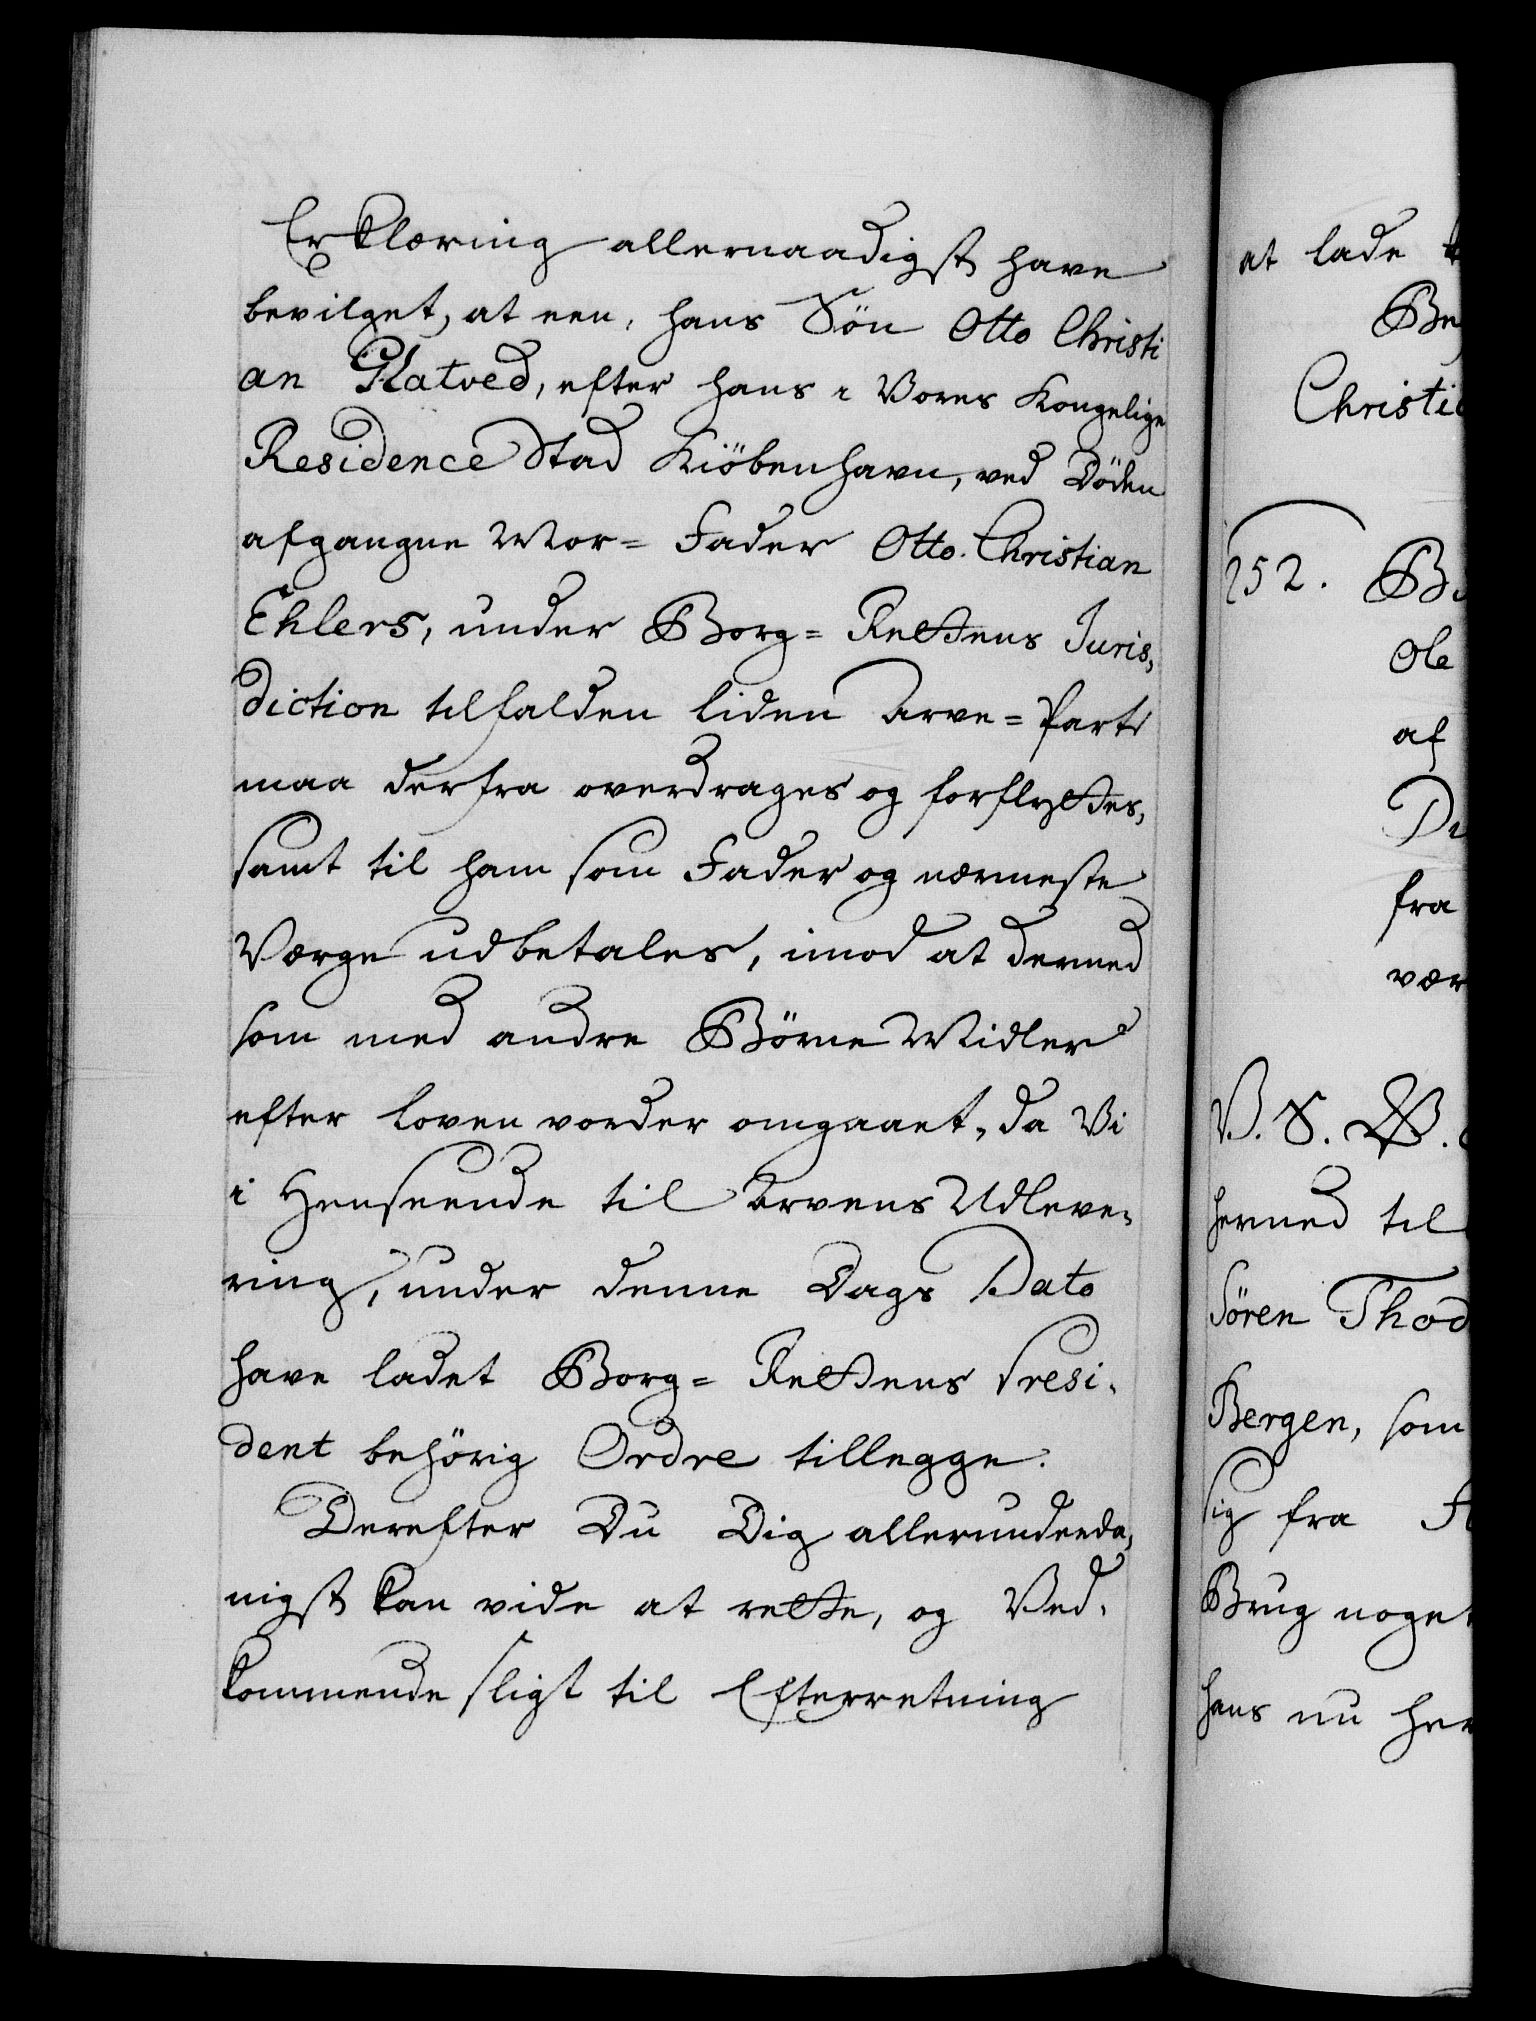 Erklæring allernaadigst have
bevilget, at een, hans Søn Otto Christi
an Platved, efter hans i Vores Kongelige
Residence Stad Kiöbenhavn, ved Døden
afgangne Mor= Fader Otto Christian
Ehlers, under Borg= Rettens Juris,
diction tilfalden liden Arve= Part
maa derfra overdrages og forflyttes,
samt til ham som Fader og nærmeste
Værge udbetales, imod at dermed
som med andre Börne Midler
efter loven vorder omgaaet, da Vi
i Henseende til Arvens Udleve,
ring, under denne Dags Dato
have ladet Borg= Rettens Presi,
dent behörig Ordre tillegge.
Derefter Du Dig allerunderda,
nigst kan vide at rette, og Ved,
kommende sligt til Efterretning
at lade
Be
Christi
252. B
Ole
af
Du
fra
vær
V. S. W.
hermed til
Sören Thod
Bergen, som
sig fra
Brug noget
hans nu her